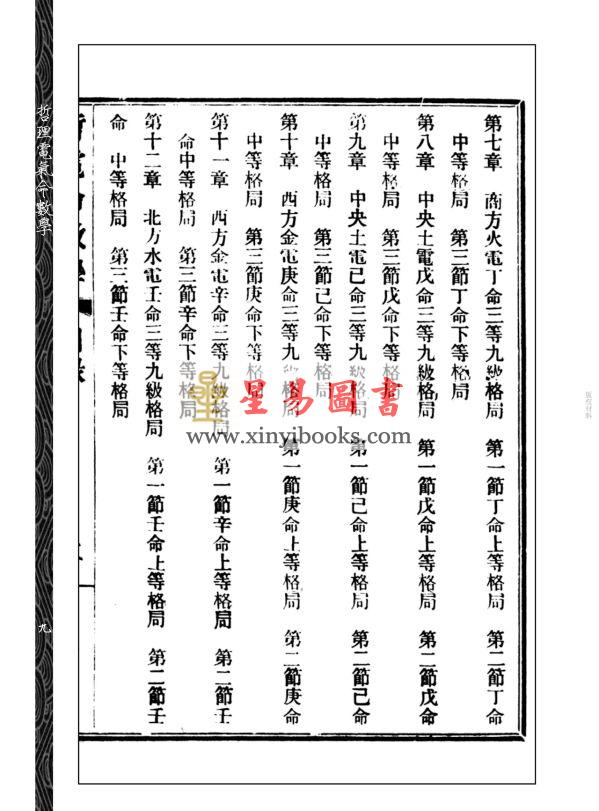 第七章 南方火電丁命三等九級格局 第一節丁命上等格局 第二節丁命
中等格局 第三節丁命下等格局
第八章 中央土電戊命三等九級格局 第一節戊命上等格局 第二節戊命
中等格局 第三節戊命下等格局
第九章 中央土電己命三等九級格局 第一節己命上等格局 第二節己命
中等格局 第三節己命下等格局
第十章 西方金電庚命三等九級格局 第一節庚命上等格局 第二節庚命
中等格局 第三節庚命下等格局
第十一章 西方金電辛命三等九級格局 第一節辛命上等格局 第二節辛
命中等格局 第三節辛命下等格局
第十二章 北方水電壬命三等九級格局 第一節壬命上等格局 第二節壬
命 中等格局 第三節壬命下等格局
哲理電氣命數學
九
星易圖書
www.xinyibooks.com
版权材料